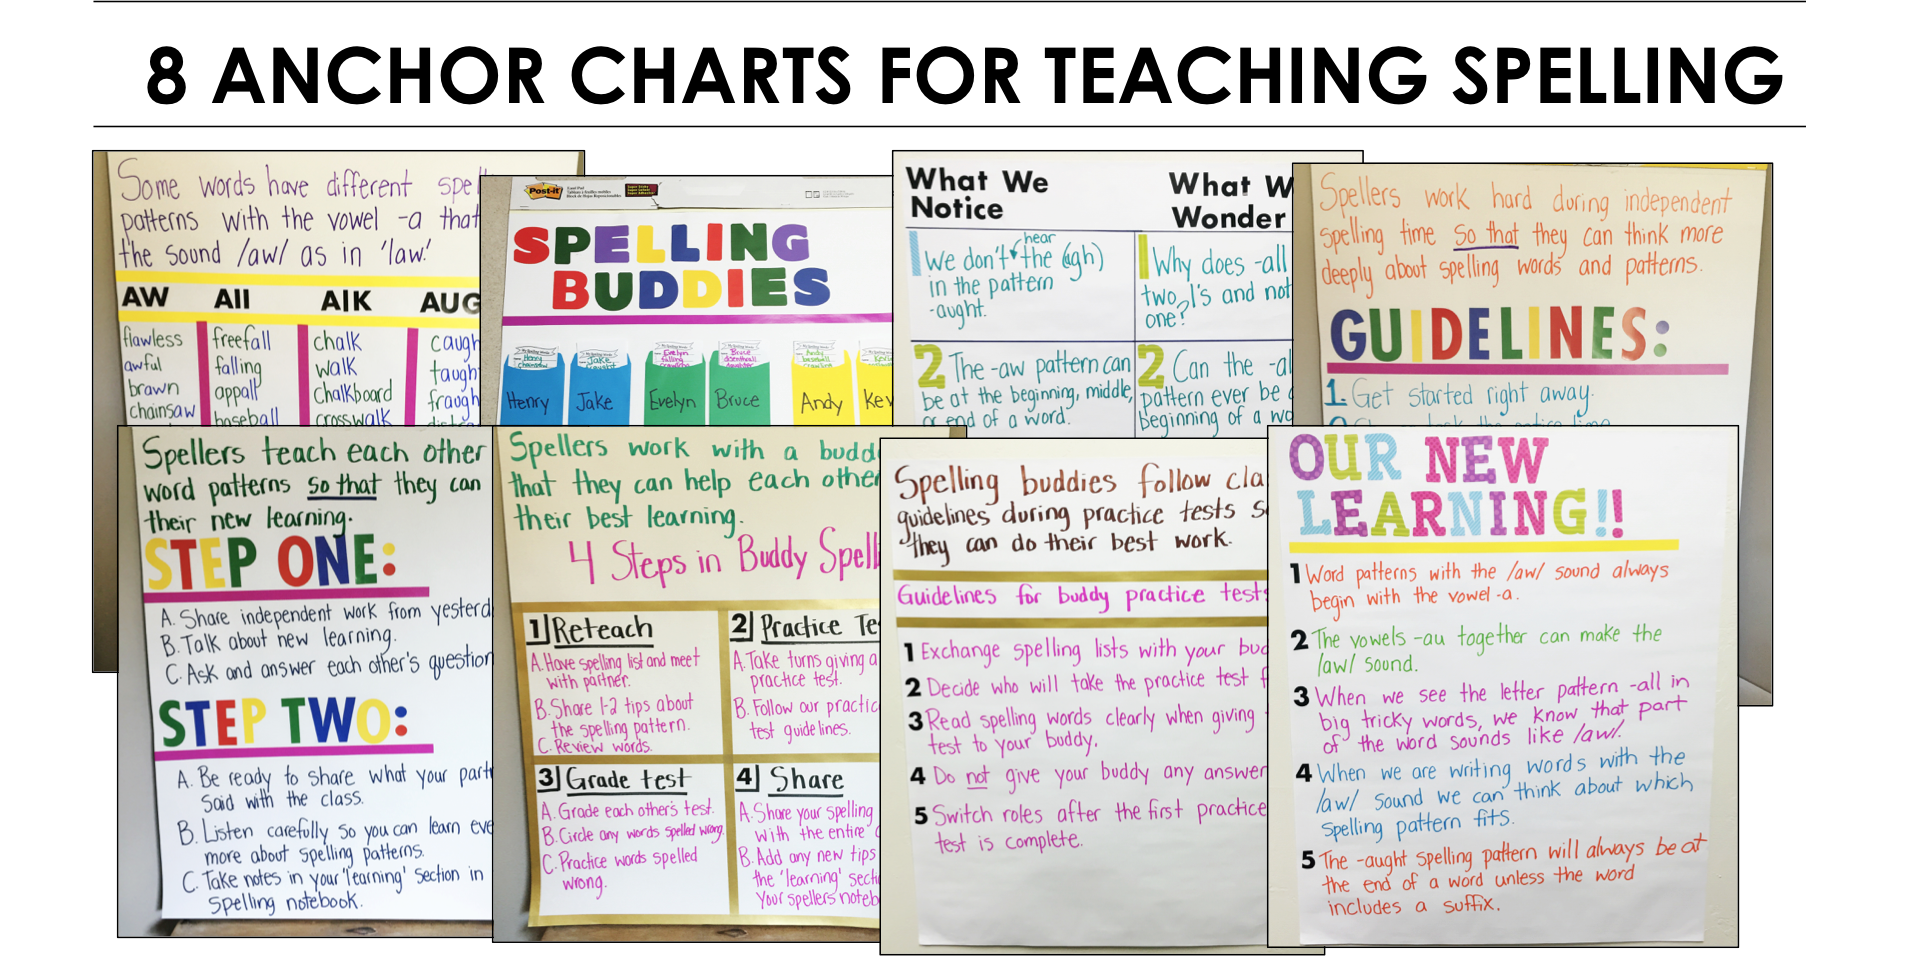 8 ANCHOR CHARTS FOR TEACHING SPELLING
Some words have different spel
patterns with the vowel -a that
the sound /aw/ as in 'law.'
AW All AlK AUG
flawless freefall chalk caugh
awful falling walk taugh
brawn appall chalkboard fraugh
chainsaw baseball crosswalk
Post-it
SPELLING
BUDDIES
Henry Jake Evelyn Bruce Andy Kev
What We
Notice
What W
Wonder
1 We don't hear the (gh)
in the pattern
-aught.
1 Why does -all
two l's and not
one?
2 The -aw pattern can
be at the beginning, middle,
or end of a word.
2 Can the -al
pattern ever be
beginning of a wo
Spellers work hard during independent
spelling time so that they can think more
deeply about spelling words and patterns.
GUIDELINES:
1. Get started right away.
Spellers teach each other
word patterns so that they can
their new learning.
STEP ONE:
A. Share independent work from yesterd
B. Talk about new learning.
C. Ask and answer each other's question
STEP TWO:
A. Be ready to share what your part
said with the class.
B. Listen carefully so you can learn eve
more about spelling patterns.
C. Take notes in your 'learning' section in
spelling notebook.
Spellers work with a budd
that they can help each other
their best learning.
4 Steps in Buddy Spell
1 Reteach
A. Have spelling list and meet
with partner.
B. Share 1-2 tips about
the spelling pattern.
C. Review words.
2 Practice Te
A. Take turns giving a
practice test.
B. Follow our practic
test guidelines.
3 Grade test
A. Grade each other's test.
B. Circle any words spelled wrong.
C. Practice words spelled
wrong.
4 Share
A. Share your spelling
with the entire c
B. Add any new tips
the 'learning' secti
your spellers noteb
Spelling buddies follow cla
guidelines during practice tests s
they can do their best work.
Guidelines for buddy practice tests
1 Exchange spelling lists with your bud
2 Decide who will take the practice test f
3 Read spelling words clearly when giving
test to your buddy.
4 Do not give your buddy any answer
5 Switch roles after the first practice
test is complete.
OUR NEW
LEARNING!!
1 Word patterns with the /aw/ sound always
begin with the vowel -a.
2 The vowels -au together can make the
/aw/ sound.
3 When we see the letter pattern -all in
big tricky words, we know that part
of the word sounds like /aw/.
4 When we are writing words with the
/aw/ sound we can think about which
spelling pattern fits.
5 The -aught spelling pattern will always be at
the end of a word unless the word
includes a suffix.